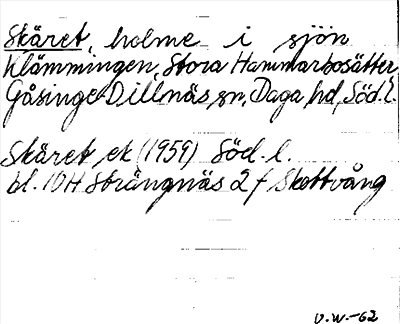 Skäret, holme i sjön
Klämmingen, Stora Hammarbosätter,
Gåsinge-Dillnäs sn, Daga hd, Söd. l.
Skäret ek (1959) Söd. l.
bl. 10H Strängnäs 2 f Skottvång
V.W.-62